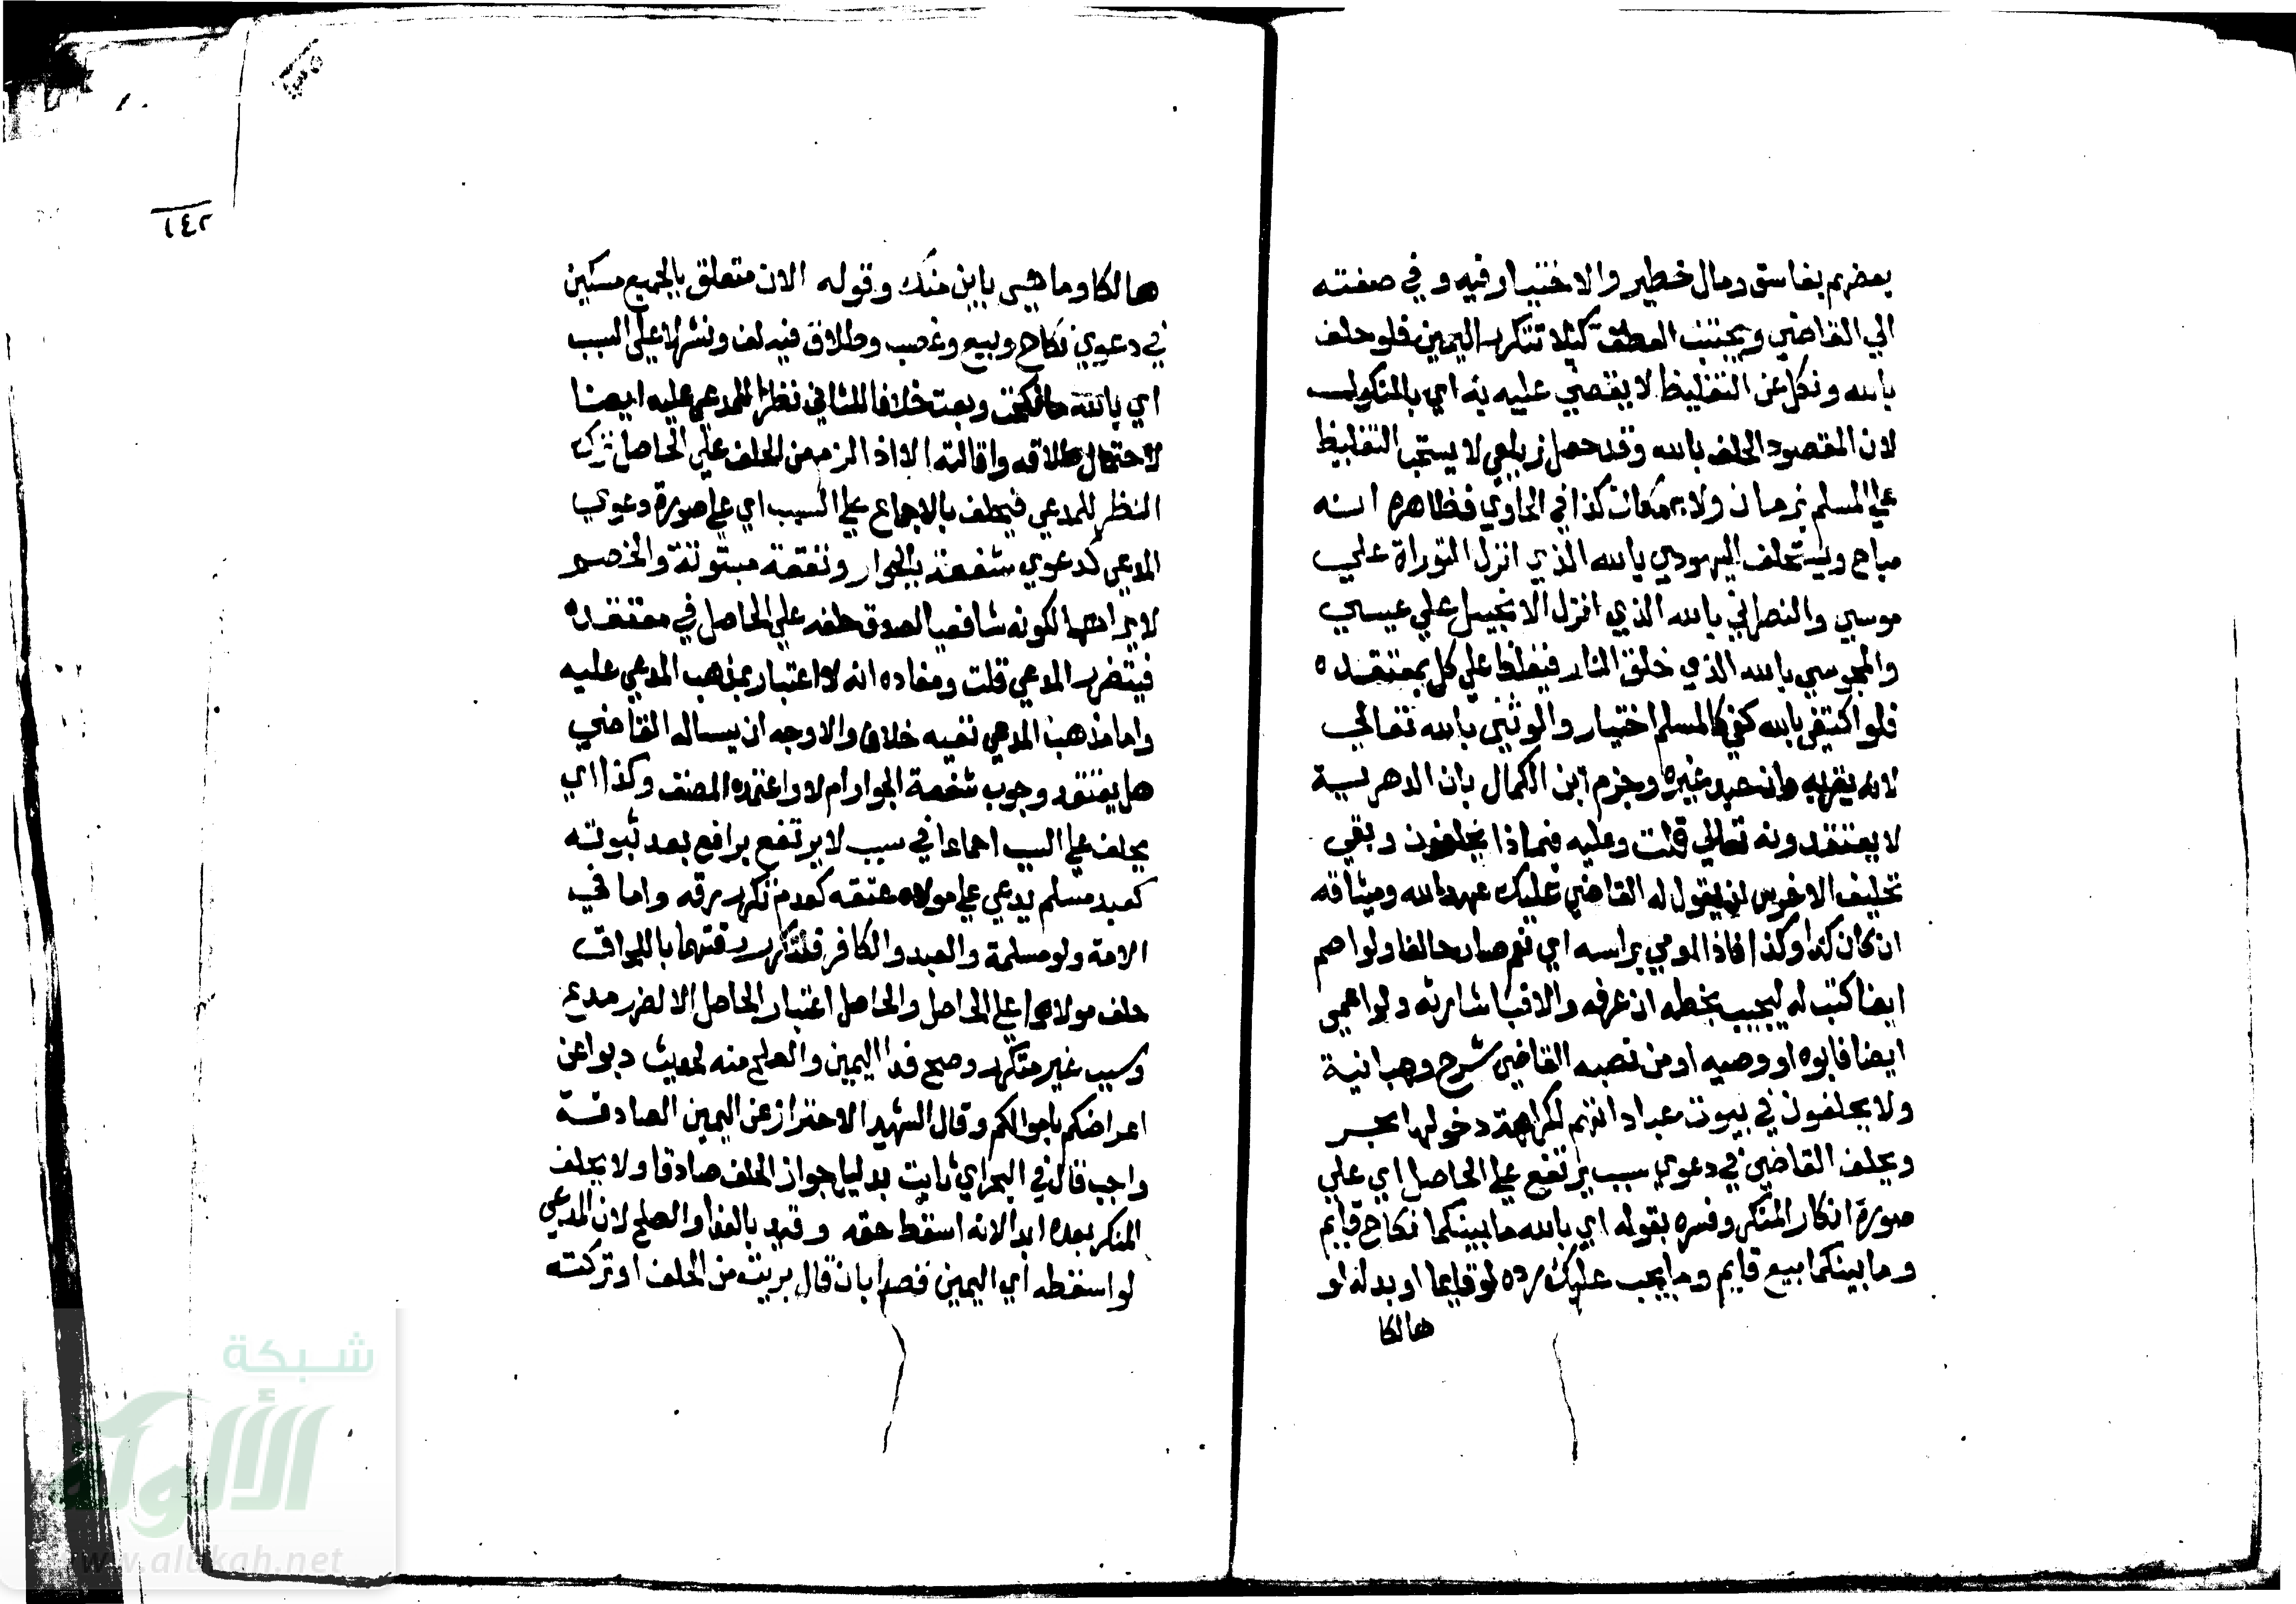 بعضهم بفاسق ومال خطير والاختيار فيه وفي صفته
الي القاضي ويجتنب العطف كيلا تتكرر اليمين فلو حلف
بالله ونكل عن التغليظ لا يقضي عليه به اي بالنكول
لان المقصود الحلف بالله وقد حصل زيلعي لا يستحب التغليظ
علي المسلم بزمان ولا بمكان كذا في الحاوي فظاهره انه
مباح ويستحلف اليهودي بالله الذي انزل التوراة علي
موسي والنصراني بالله الذي انزل الانجيل علي عيسي
والمجوسي بالله الذي خلق النار فيغلظ علي كل بمعتقده
فلو اكتفي بالله كفي كالمسلم اختيار والوثني بالله تعالي
لانه يقر به وان عبد غيره وجزم ابن الكمال بان الدهرية
لا يعتقدونه تعالي قلت وعليه فبماذا يحلفون وبقي
تحليف الاخرس ان يقول له القاضي عليك عهد الله وميثاقه
ان كان كذا وكذا فاذا اومي براسه اي نعم صار حالفا ولو اصم
ايضا كتب له ليجيب بخطه ان عرفه والا فباشارته ولو اعمي
ايضا فابوه او وصيه او من نصبه القاضي شرح وهبانية
ولا يحلفون في بيوت عباداتهم لكراهة دخولها بحر
ويحلف القاضي في دعوي سبب يرتفع علي الحاصل اي علي
صورة انكار المنكر وفسره بقوله اي بالله ما بينكما نكاح قايم
وما بينكما بيع قايم وما يجب عليك رده لو قايما او بدله لو
هالكا
١٤٢
هالكا وما هي باين منك وقوله الان متعلق بالجميع مسكين
في دعوي نكاح وبيع وغصب وطلاق فيه لف ونشر لا علي السبب
اي بالله ما نكحت وبعت خلافا للثاني نظرا للمدعي عليه ايضا
لاحتمال طلاقه واقالته الا اذا لزم من الحلف علي الحاصل ترك
النظر للمدعي فيحلف بالاجماع علي السبب اي علي صورة دعوي
المدعي كدعوي شفعة بالجوار ونفقة مبتوتة والخصم
لا يراهما لكونه شافعيا لصدق حلفه علي الحاصل في معتقده
فيتضرر المدعي قلت ومفاده انه لا اعتبار بمذهب المدعي عليه
واما مذهب المدعي ففيه خلاف والاوجه ان يساله القاضي
هل يعتقد وجوب شفعة الجوار ام لا واعتمده المصنف وكذا اي
يحلف علي السبب اجماعا في سبب لا يرتفع برافع بعد ثبوته
كعبد مسلم يدعي علي مولاه عتقه لعدم تكرر رقه واما في
الامة ولو مسلمة والعبد والكافر فلتكرر رقهما باللحاق
حلف مولاهما علي الحاصل والحاصل اعتبار الحاصل الا لضرر مدع
وسبب غير متكرر وصح فدا اليمين والصلح منه لحديث ذبوا عن
اعراضكم باموالكم وقال الشهيد الاحتراز عن اليمين الصادقة
واجب قال في البحر اي ثابت بدليل جواز الحلف صادقا ولا يحلف
المنكر بعده ابدا لانه اسقط حقه وقيد بالفدا والصلح لان المدعي
لو اسقطه اي اليمين قصدا بان قال بريت من الحلف او تركته
شبكة
الألوكة
www.alukah.net